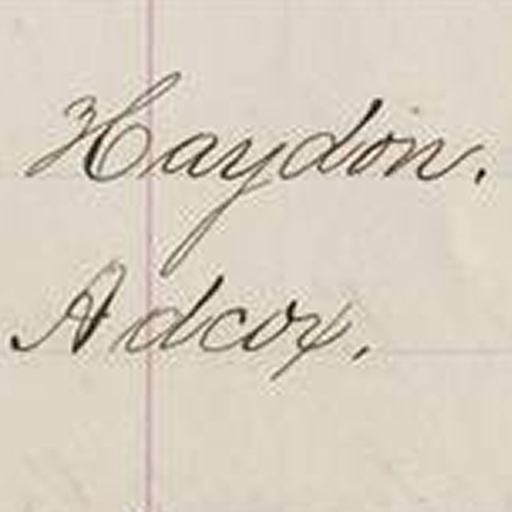 Haydon.
Adcox.